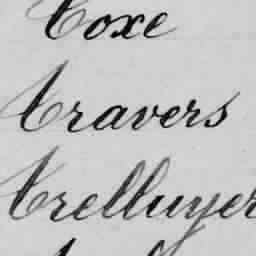 Toxe
Travers
Trelluyer